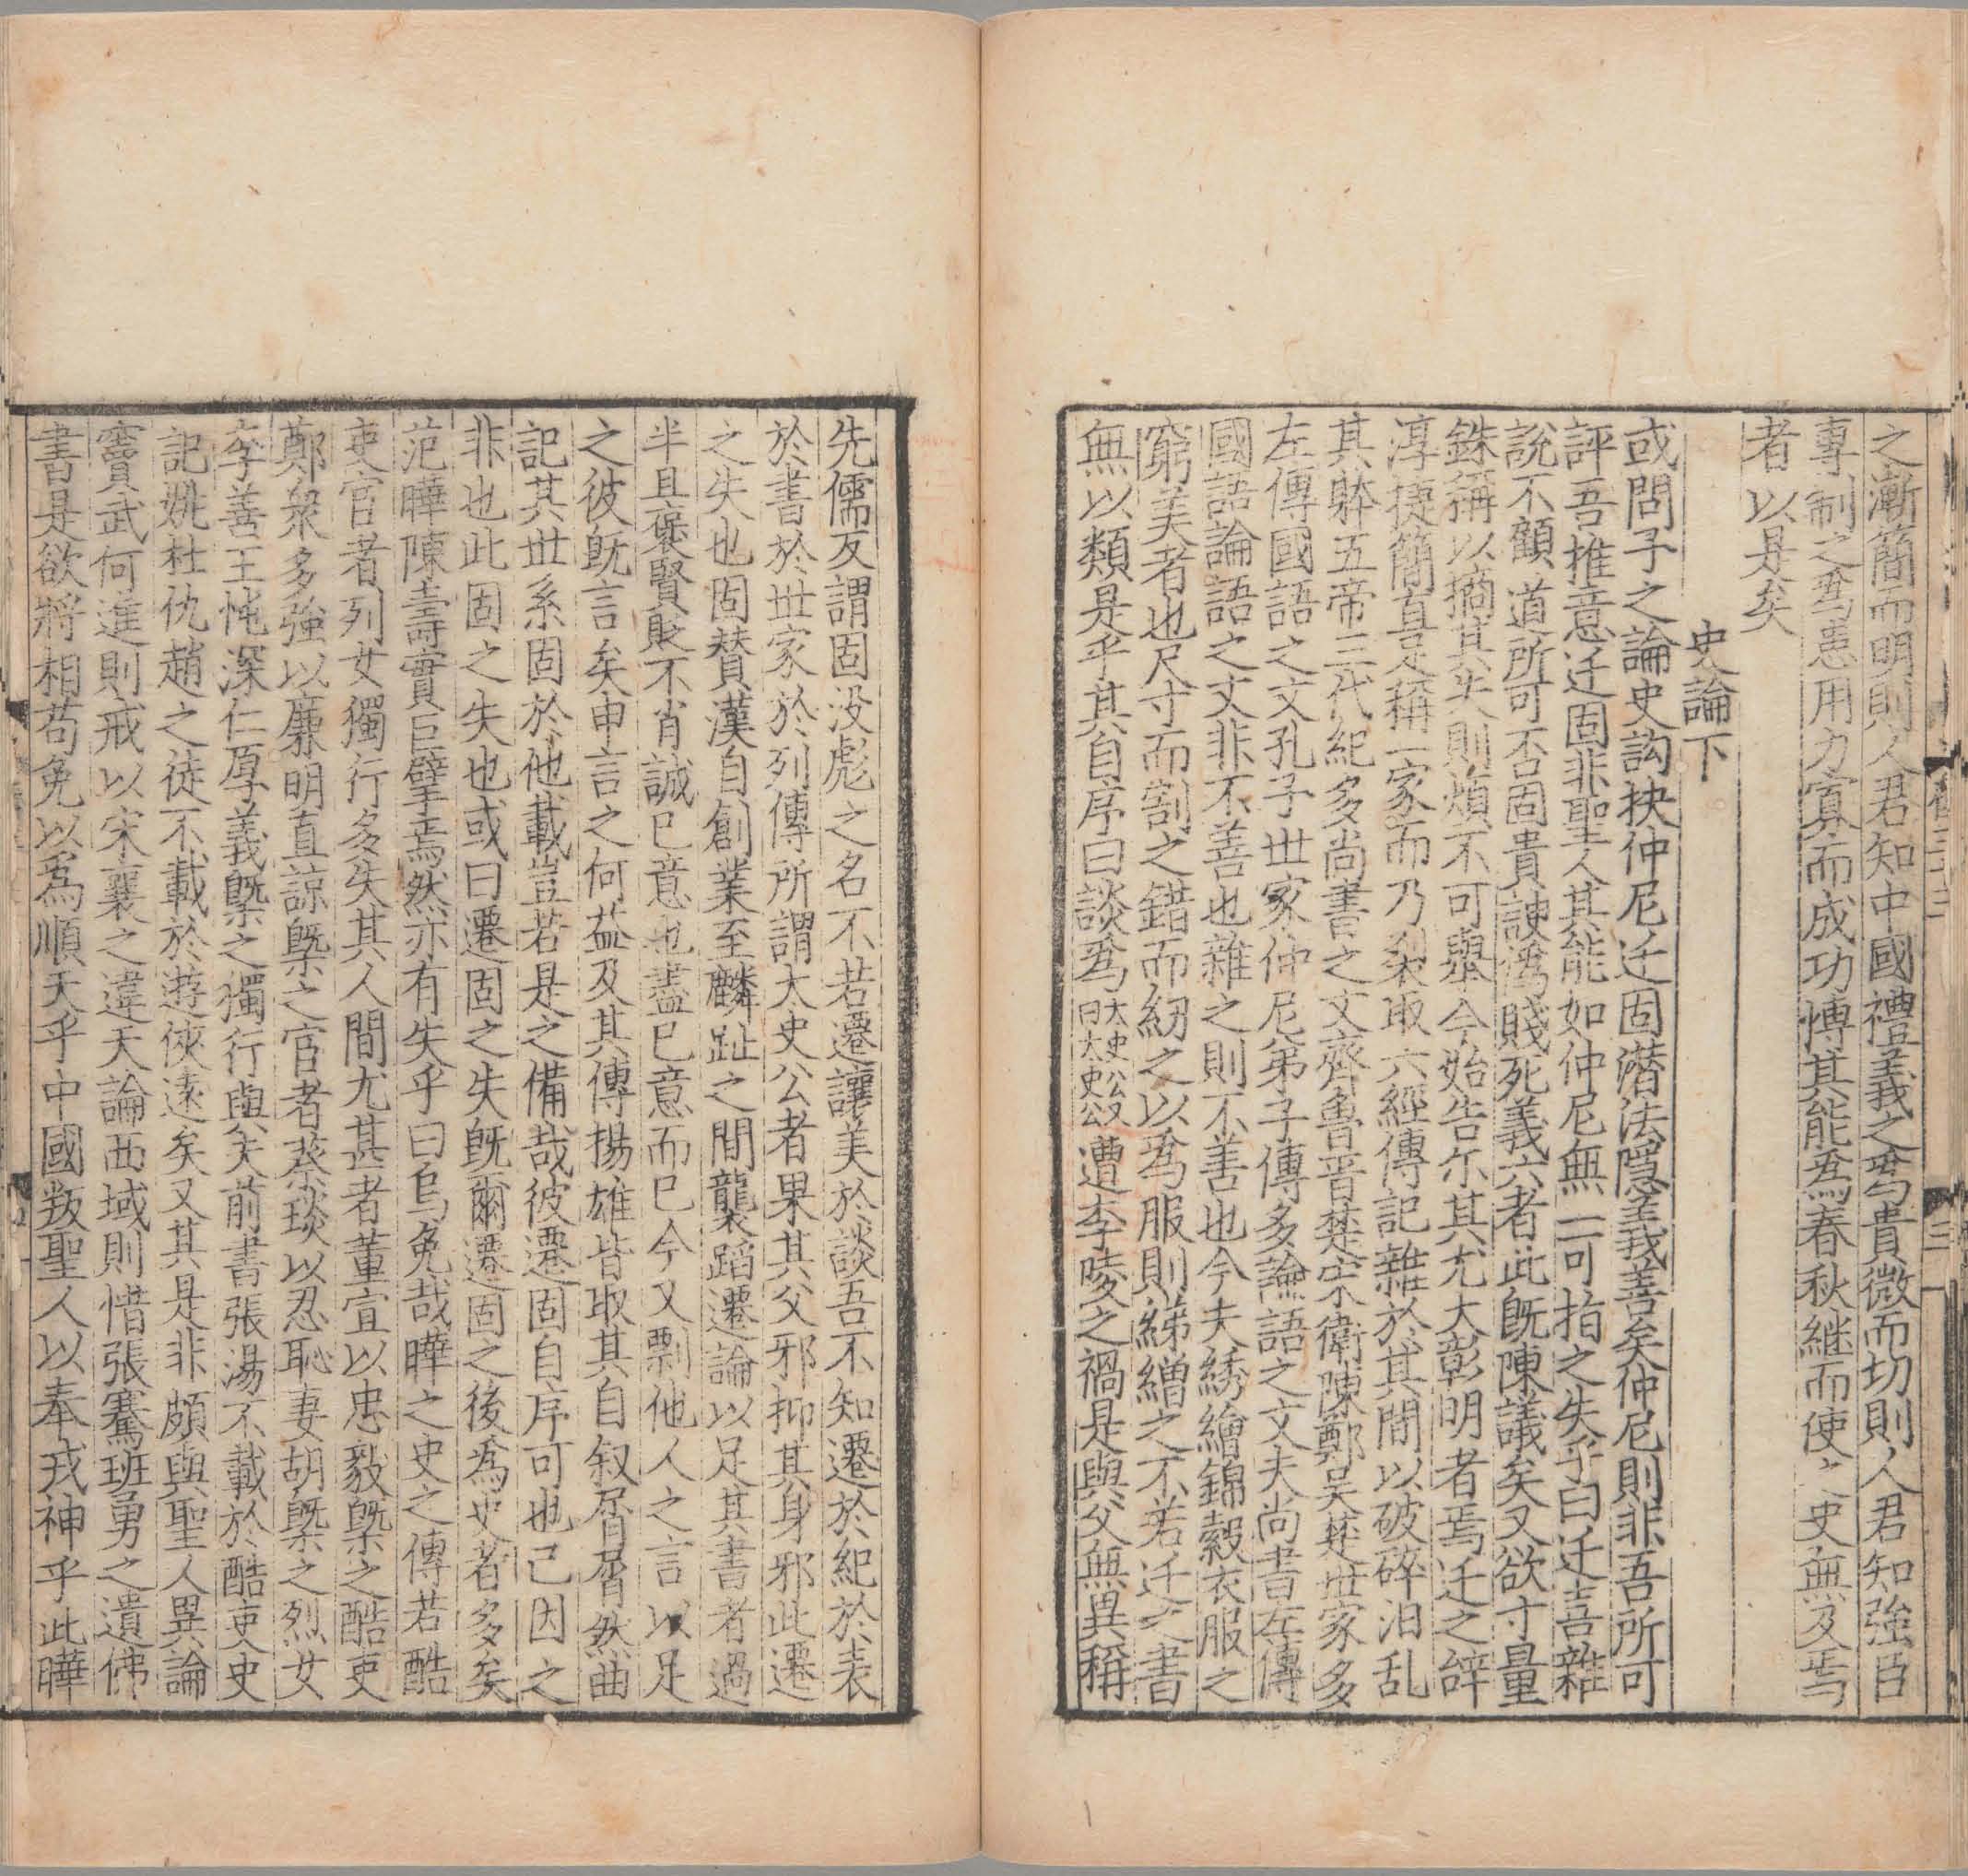 之漸簡而明則人君知中國禮義之爲貴微而切則人君知強臣
專制之爲患用力寡而成功博其能爲春秋継而使〻史無及焉
者以是矣
史論下
或問子之論史鈎抉仲尼迁固潜法隠義善矣仲尼則非吾所可
評吾推意迁固非聖人其能如仲尼無一可指之失乎曰迁喜雜
說不顧道所可否固貴諛偽賤死義六者此旣陳議矣又欲寸量
銖稱以摘其失則煩不可舉今始告尔其尤大彰明者焉迁之辞
淳揵簡直足稱一家而乃裂取六經傳記雜於其間以破碎汨乱
其躰五帝三代紀多尚書之文齊魯晋楚宋衛陳鄭吴楚世家多
左傳國語之文孔子世家仲尼弟子傳多論語之文夫尚書左傳
國語論語之文非不善也雜之則不善也今夫綉繪錦縠衣服之
窮美者也尺寸而割之錯而紉之以爲服則綈繒之不若迁之書
無以類是乎其自序曰談爲大史公又曰大史公遭李陵之禍是與父無異稱
先儒反謂固没彪之名不若遷讓美於談吾不知遷於紀於表
於書於世家於列傳所謂太史公者果其父邪抑其身邪此遷
之失也固賛漢自創業至麟趾之間襲蹈遷論以足其書者過
半且褒賢貶不肖誠已意也盡已意而已今又剽他人之言以足
之彼旣言矣申言之何益及其傳揚雄皆取其自叙屑屑然曲
記其世系固於他載豈若是之備哉彼遷固自序可也己因之
非也此固之失也或曰遷固之失旣爾遷固之後爲史者多矣
范曄陳壽實巨擘焉然亦有失乎曰烏免哉曄之史之傳若酷
吏宦者列女獨行多失其人間尤甚者董宣以忠毅槩之酷吏
鄭衆吕強以廉明直諒槩之宦者蔡琰以忍恥妻胡槩之烈女
李善王忳深仁厚義槩之獨行與夫前書張湯不載於酷吏史
記姚杜仇趙之徒不載於遊俠遠矣又其是非頗與聖人異論
竇武何進則戒以宋襄之違天論西域則惜張騫班勇之遺佛
書是欲將相苟免以爲順天乎中國叛聖人以奉戎神乎此曄